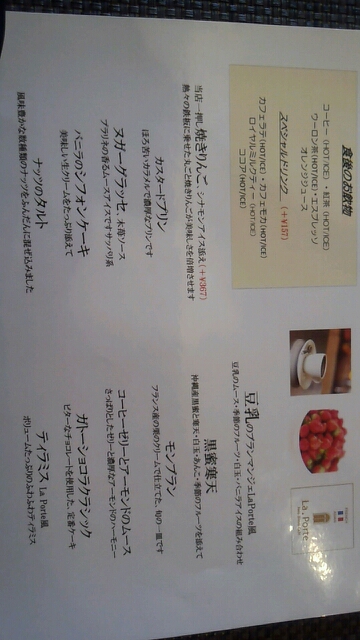 食後のお飲物
コーヒー (HOT/ICE) ・紅茶 (HOT/ICE)
ウーロン茶(HOT/ICE)・エスプレッソ
オレンジジュース
スペシャルドリンク (+¥157)
カフェラテ(HOT/ICE)・カフェモカ(HOT/ICE)
ロイヤルミルクティー(HOT/ICE)
ココア(HOT/ICE)
当店一押し焼きりんご、シナモンアイス添え(+¥367)
熱々の鉄板に乗せた丸ごと焼きりんごが美味しさを倍増させます
カスタードプリン
ほろ苦いカラメルで濃厚なプリンです
ヌガーグラッセ、木苺ソース
プラリネの香るムースアイスですナッツ系
バニラのシフォンケーキ
美味しい生クリームをたっぷり添えて
ナッツのタルト
風味豊かな数種類のナッツをふんだんに混ぜ込みました
La Porte
豆乳のブランマンジェLaPorte風
豆乳のムース・季節のフルーツ・白玉・バニラアイスの組み合わせ
黒蜜寒天
沖縄産黒蜜と寒天・白玉・あんこ・季節のフルーツを添えて
モンブラン
フランス産の栗のクリームで仕立てた、旬の一皿です
コーヒーゼリーとアーモンドのムース
さっぱりとしたゼリーと濃厚なアーモンドのハーモニー
ガトーショコラクラシック
ビターなチョコレートを使用した、定番ケーキ
ティラミス La Porte風
ボリュームたっぷりのふわふわティラミス